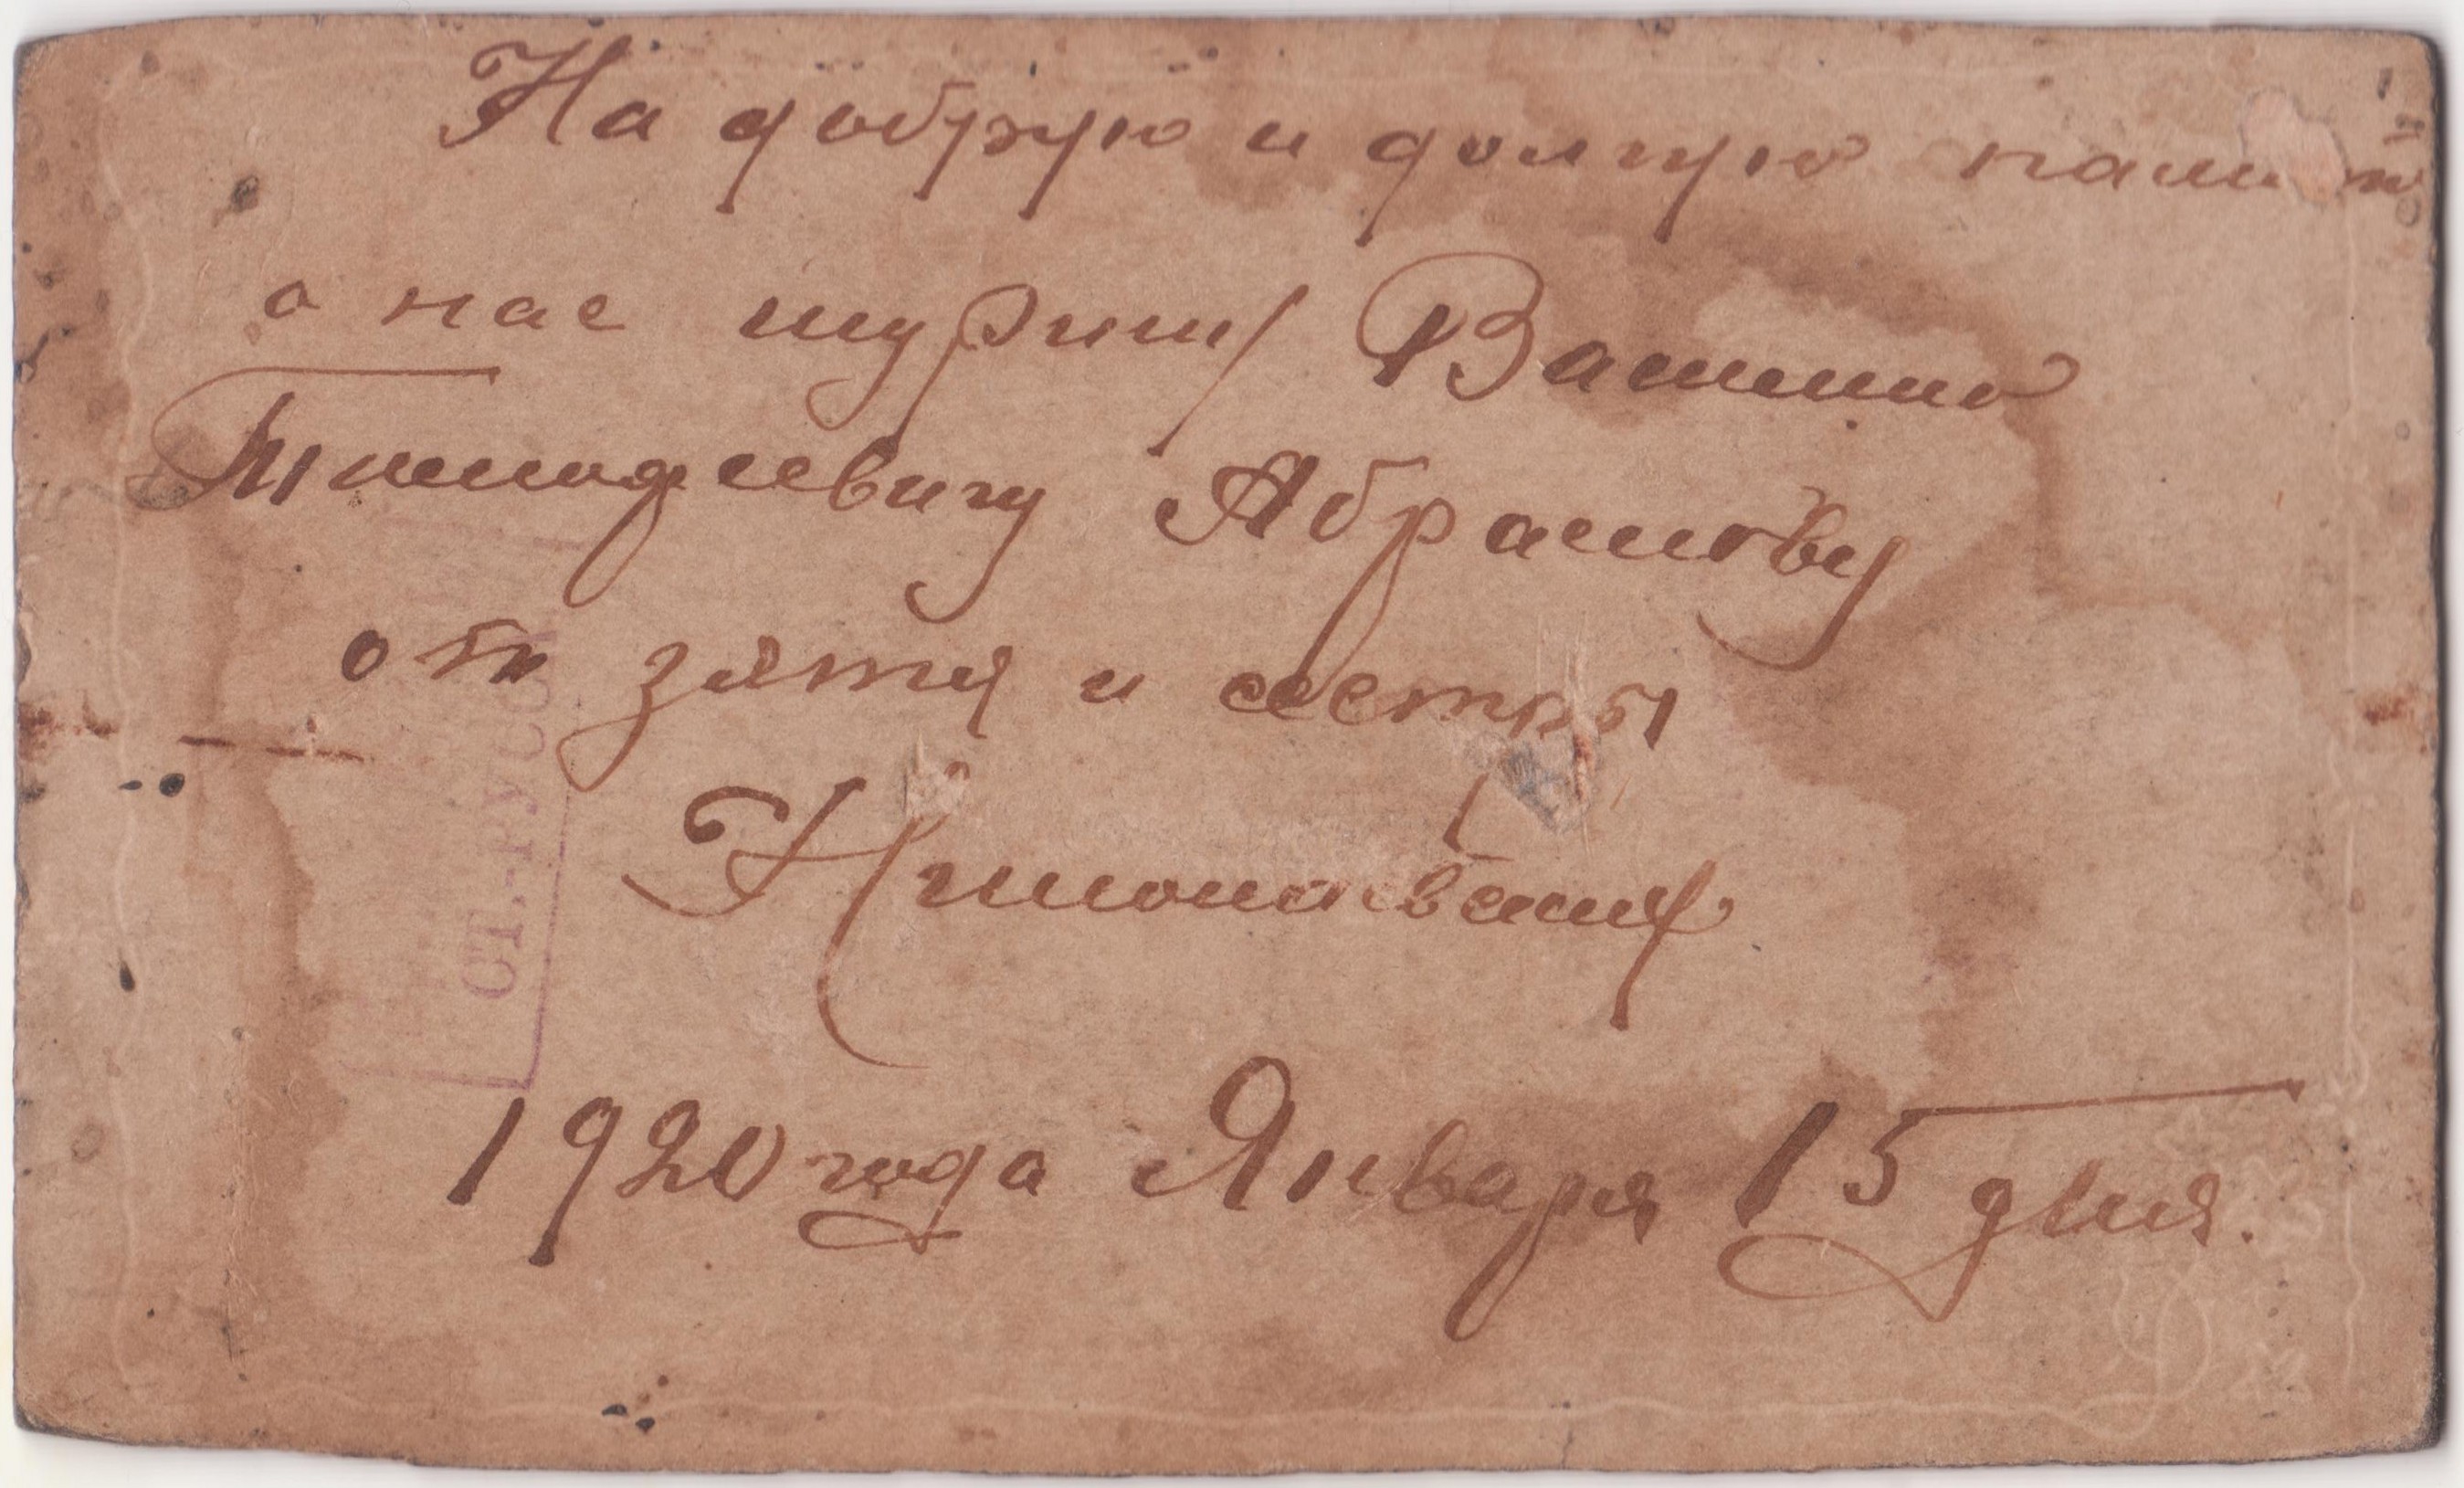 На добрую и долгую память
о нас шурину Василию
Тимофеевичу Абрамову
отъ зятя и сестры
1920 года Января 15 дня.
СТ.-РУССА